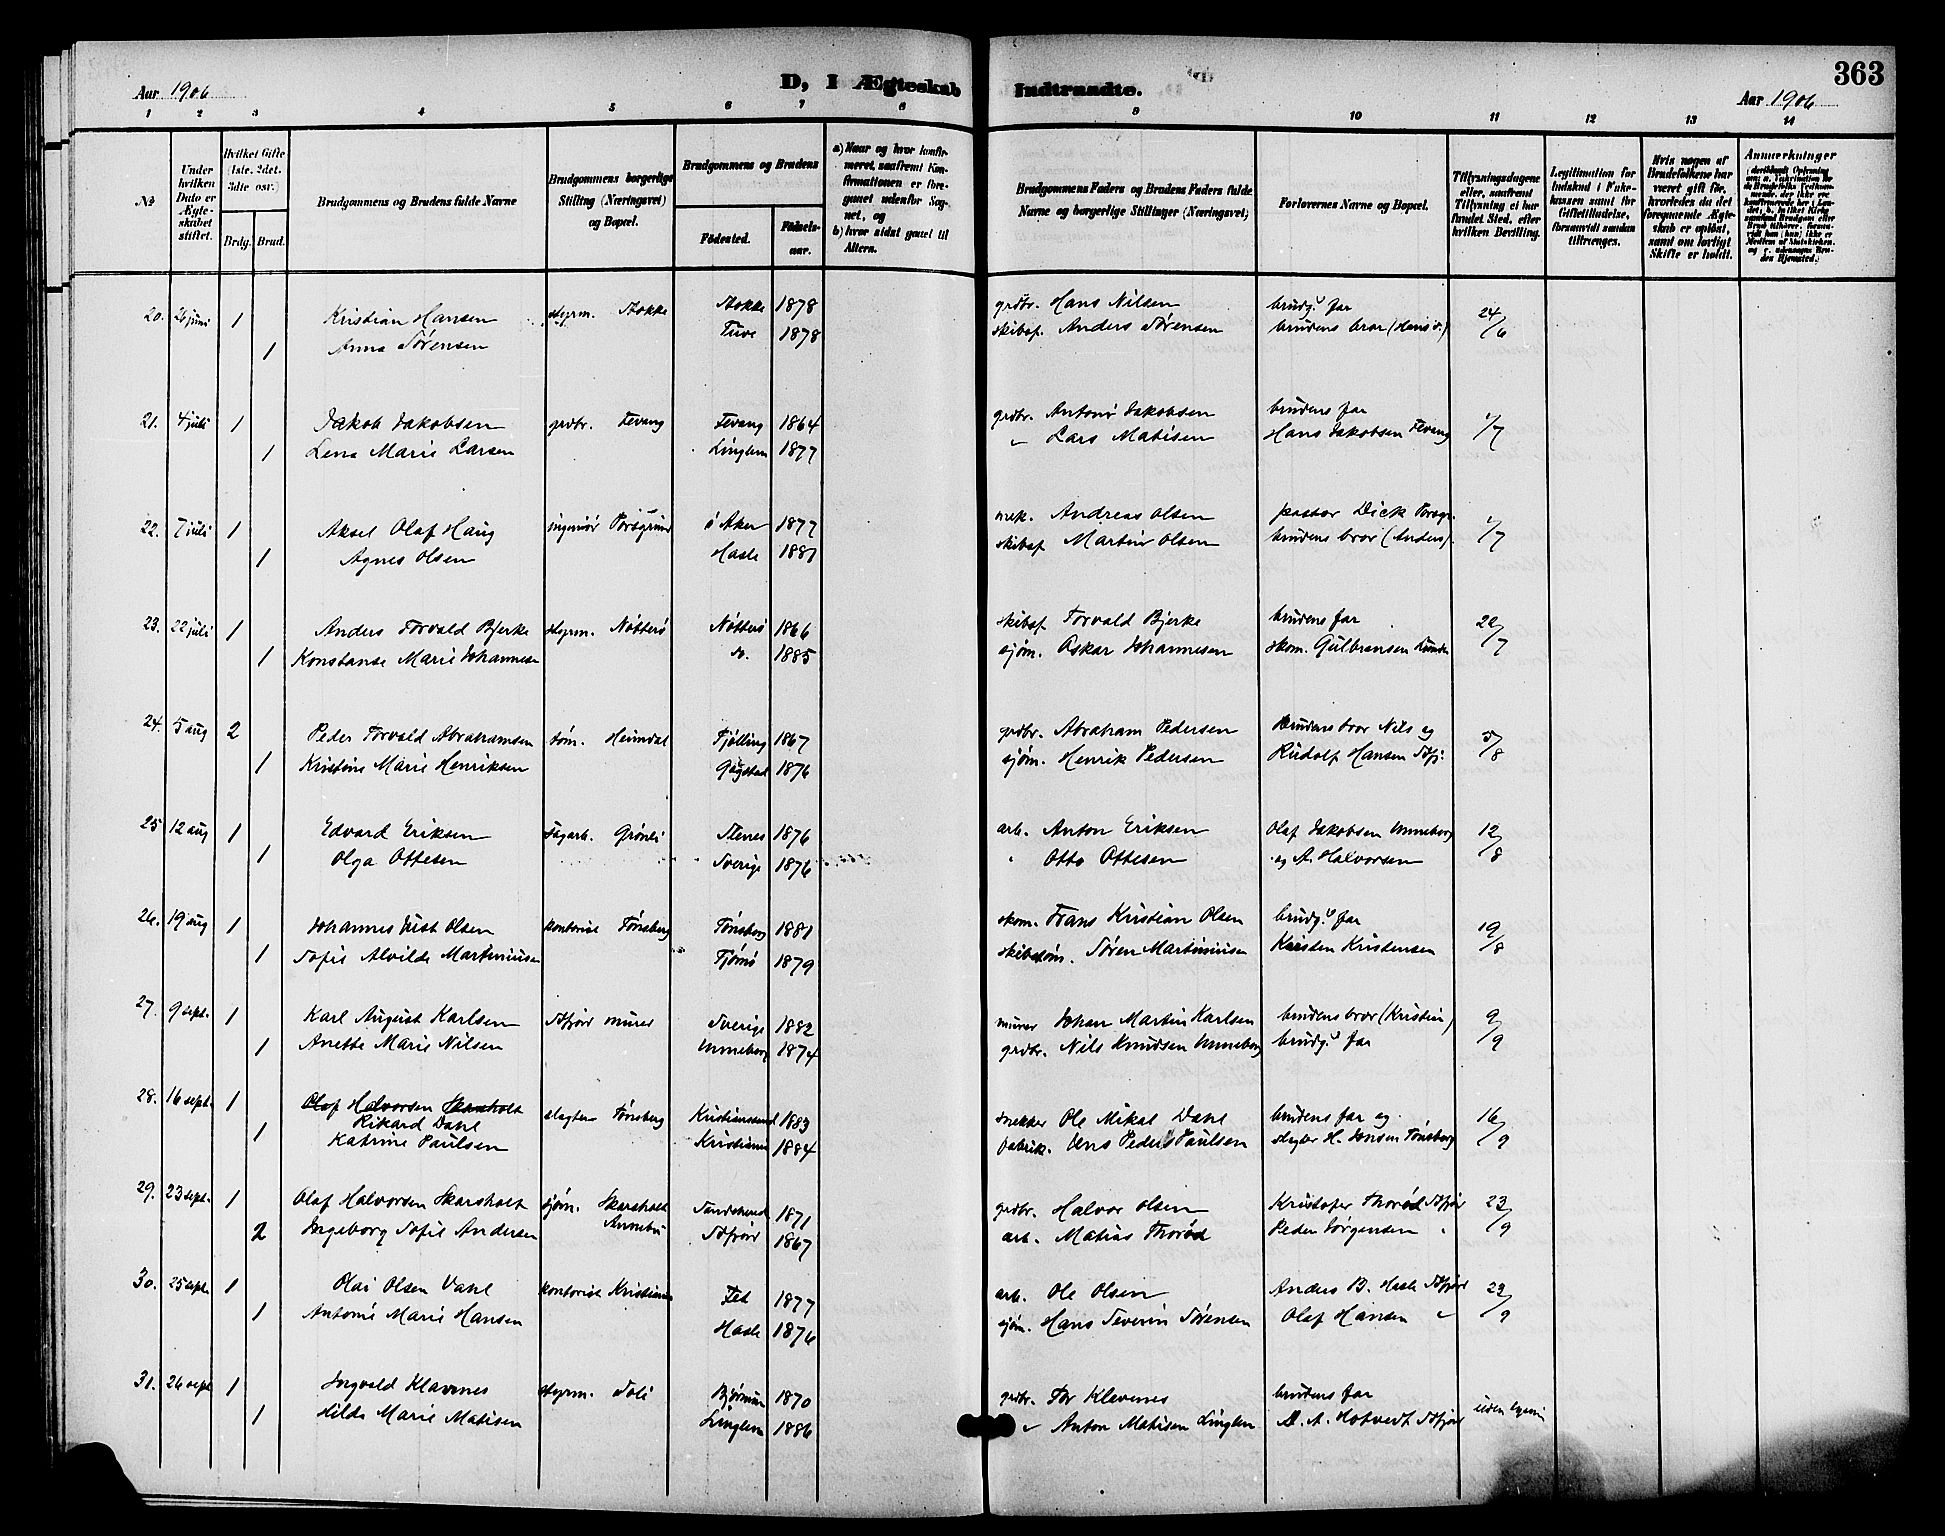 363
Aar 1906 D, I Ægteskab Indtraadte. Aar 1906
1 2 3 4 5 6 7 8 9 10 11 12 13 14
No
Under hvilken Dato er Ægteskabet stiftet.
Hvilket Gifte (1ste, 2det, 3dte osv.)
Brdg. Brud.
Brudgommens og Brudens fulde Navne
Brudgommens borgerlige Stilling (Næringsvei) og Bopæl.
Brudgommens og Brudens
Fødested. Fødselsaar.
a) Naar og hvor konfirmeret, saafremt Konfirmationen er foregaaet udenfor Sognet, og
b) hvor sidst gaaet til Alters.
Brudgommens Faders og Brudens Faders fulde Navne og borgerlige Stillinger (Næringsvei)
Forlovernes Navne og Bopæl.
Tillysningsdagene eller, saafremt Tillysning ei har fundet Sted, efter hvilken Bevilling.
Legitimation for Indskud i Enkekassen samt for Giftetilladelse, forsaavidt saadan tiltrænges.
Hvis nogen af Brudefolkene har været gift før, hvorledes da det foregaaende Ægteskab er opløst, samt om lovligt Skifte er holdt.
Anmærkninger
20. 26 juni 1 Kristian Hansen styrm. Stokke Stokke 1878 grdbr. Hans Nilsen brudg.s far 24/6
1 Anna Sørensen Tuve 1878 skibsf. Anders Sørensen brudens bror (Hans S.)
21. 4 juli 1 Jakob Jakobsen grdbr. Fevang Fevang 1864 grdbr. Antoni Jakobsen brudens far 1/7
1 Lena Marie Larsen Linglem 1877 " Lars Matisen Hans Jakobsen Fevang
22. 7 juli 1 Aksel Olaf Haug ingeniør Porsgrund ø Aker 1877 mek. Andreas Olsen pastor Dick Porsgr. 1/7
1 Agnes Olsen Hasle 1881 skibsf. Martin Olsen brudens bror (Anders).
23. 22 juli 1 Anders Torvald Bjerke styrm. Nøtterø Nøtterø 1866 skibsf. Torvald Bjerke brudens far 22/7
1 Konstanse Marie Johannesen do. 1885 sjøm. Oskar Johannesen skom. Gulbransen Lunden
24. 5 aug 2 Peder Torvald Abrahamsen tøm. Heimdal Tjølling 1867 grdbr. Abraham Pedersen Brudens bror Nils og 5/8
1 Kristine Marie Henriksen Gogstad 1876 sjøm. Henrik Pedersen Rudolf Hansen Sfj.
25 12 aug 1 Edvard Eriksen sagarb. Grønli Stenes 1876 arb. Anton Eriksen Olaf Jakobsen Unneberg 12/8
1 Olga Ottesen Sverige 1876 " Otto Ottesen og A. Halvorsen
26. 19 aug 1 Johannes Just Olsen kontorist Tønsberg Tønsberg 1881 skom. Frans Kristian Olsen brudg.s far 19/8
1 Sofie Alvilde Martiniusen Tjømø 1879 skibstøm. Søren Martiniusen Kristen Kristensen
27. 9 sept. 1 Karl August Karlsen Sfjord murer Sverige 1882 murer Johan Martin Karlsen brudens bror (Kristian) 9/9
1 Anette Marie Nilsen Unneberg 1874 grdbr. Nils Knudsen Unneberg brudg.s far
28. 16 sept. 1 Olaf Halvorsen Skarsholt
Rikard Dahl slagter Tønsberg Kristiansund 1883 snekker Ole Mikal Dahl brudens far og 16/9
1 Katrine Paulsen Kristiania 1884 fabrik. Jens Peder Paulsen slagter H. Jonsen Tønsberg
29. 23 sept. 1 Olaf Halvorsen Skarsholt sjøm. Skarsholt Annebu Sandeherred 1871 grdbr. Halvor Olsen Kristofer Thorød Sfjor 23/9
2 Ingeborg Sofie Andersen Sfjord 1867 arb. Matias Thorød Peder Jørgensen "
30. 25 sept. 1 Olai Olsen Vahl kontorist Kristiania Fet 1877 arb. Ole Olsen Anders B. Hasle Sfjord 23/9
1 Antonie Marie Hansen Hasle 1876 sjøm. Hans Severin Sørensen Olaf Hansen "
31. 26 sept 1 Ingvald Klavenes styrm. Sole 1870 grdbr. Tor Klavenes brudens far uden
1 Hilda Marie Matisen Linglem 1886 " Anton Matisen Linglem A. Hotvedt Sfjord